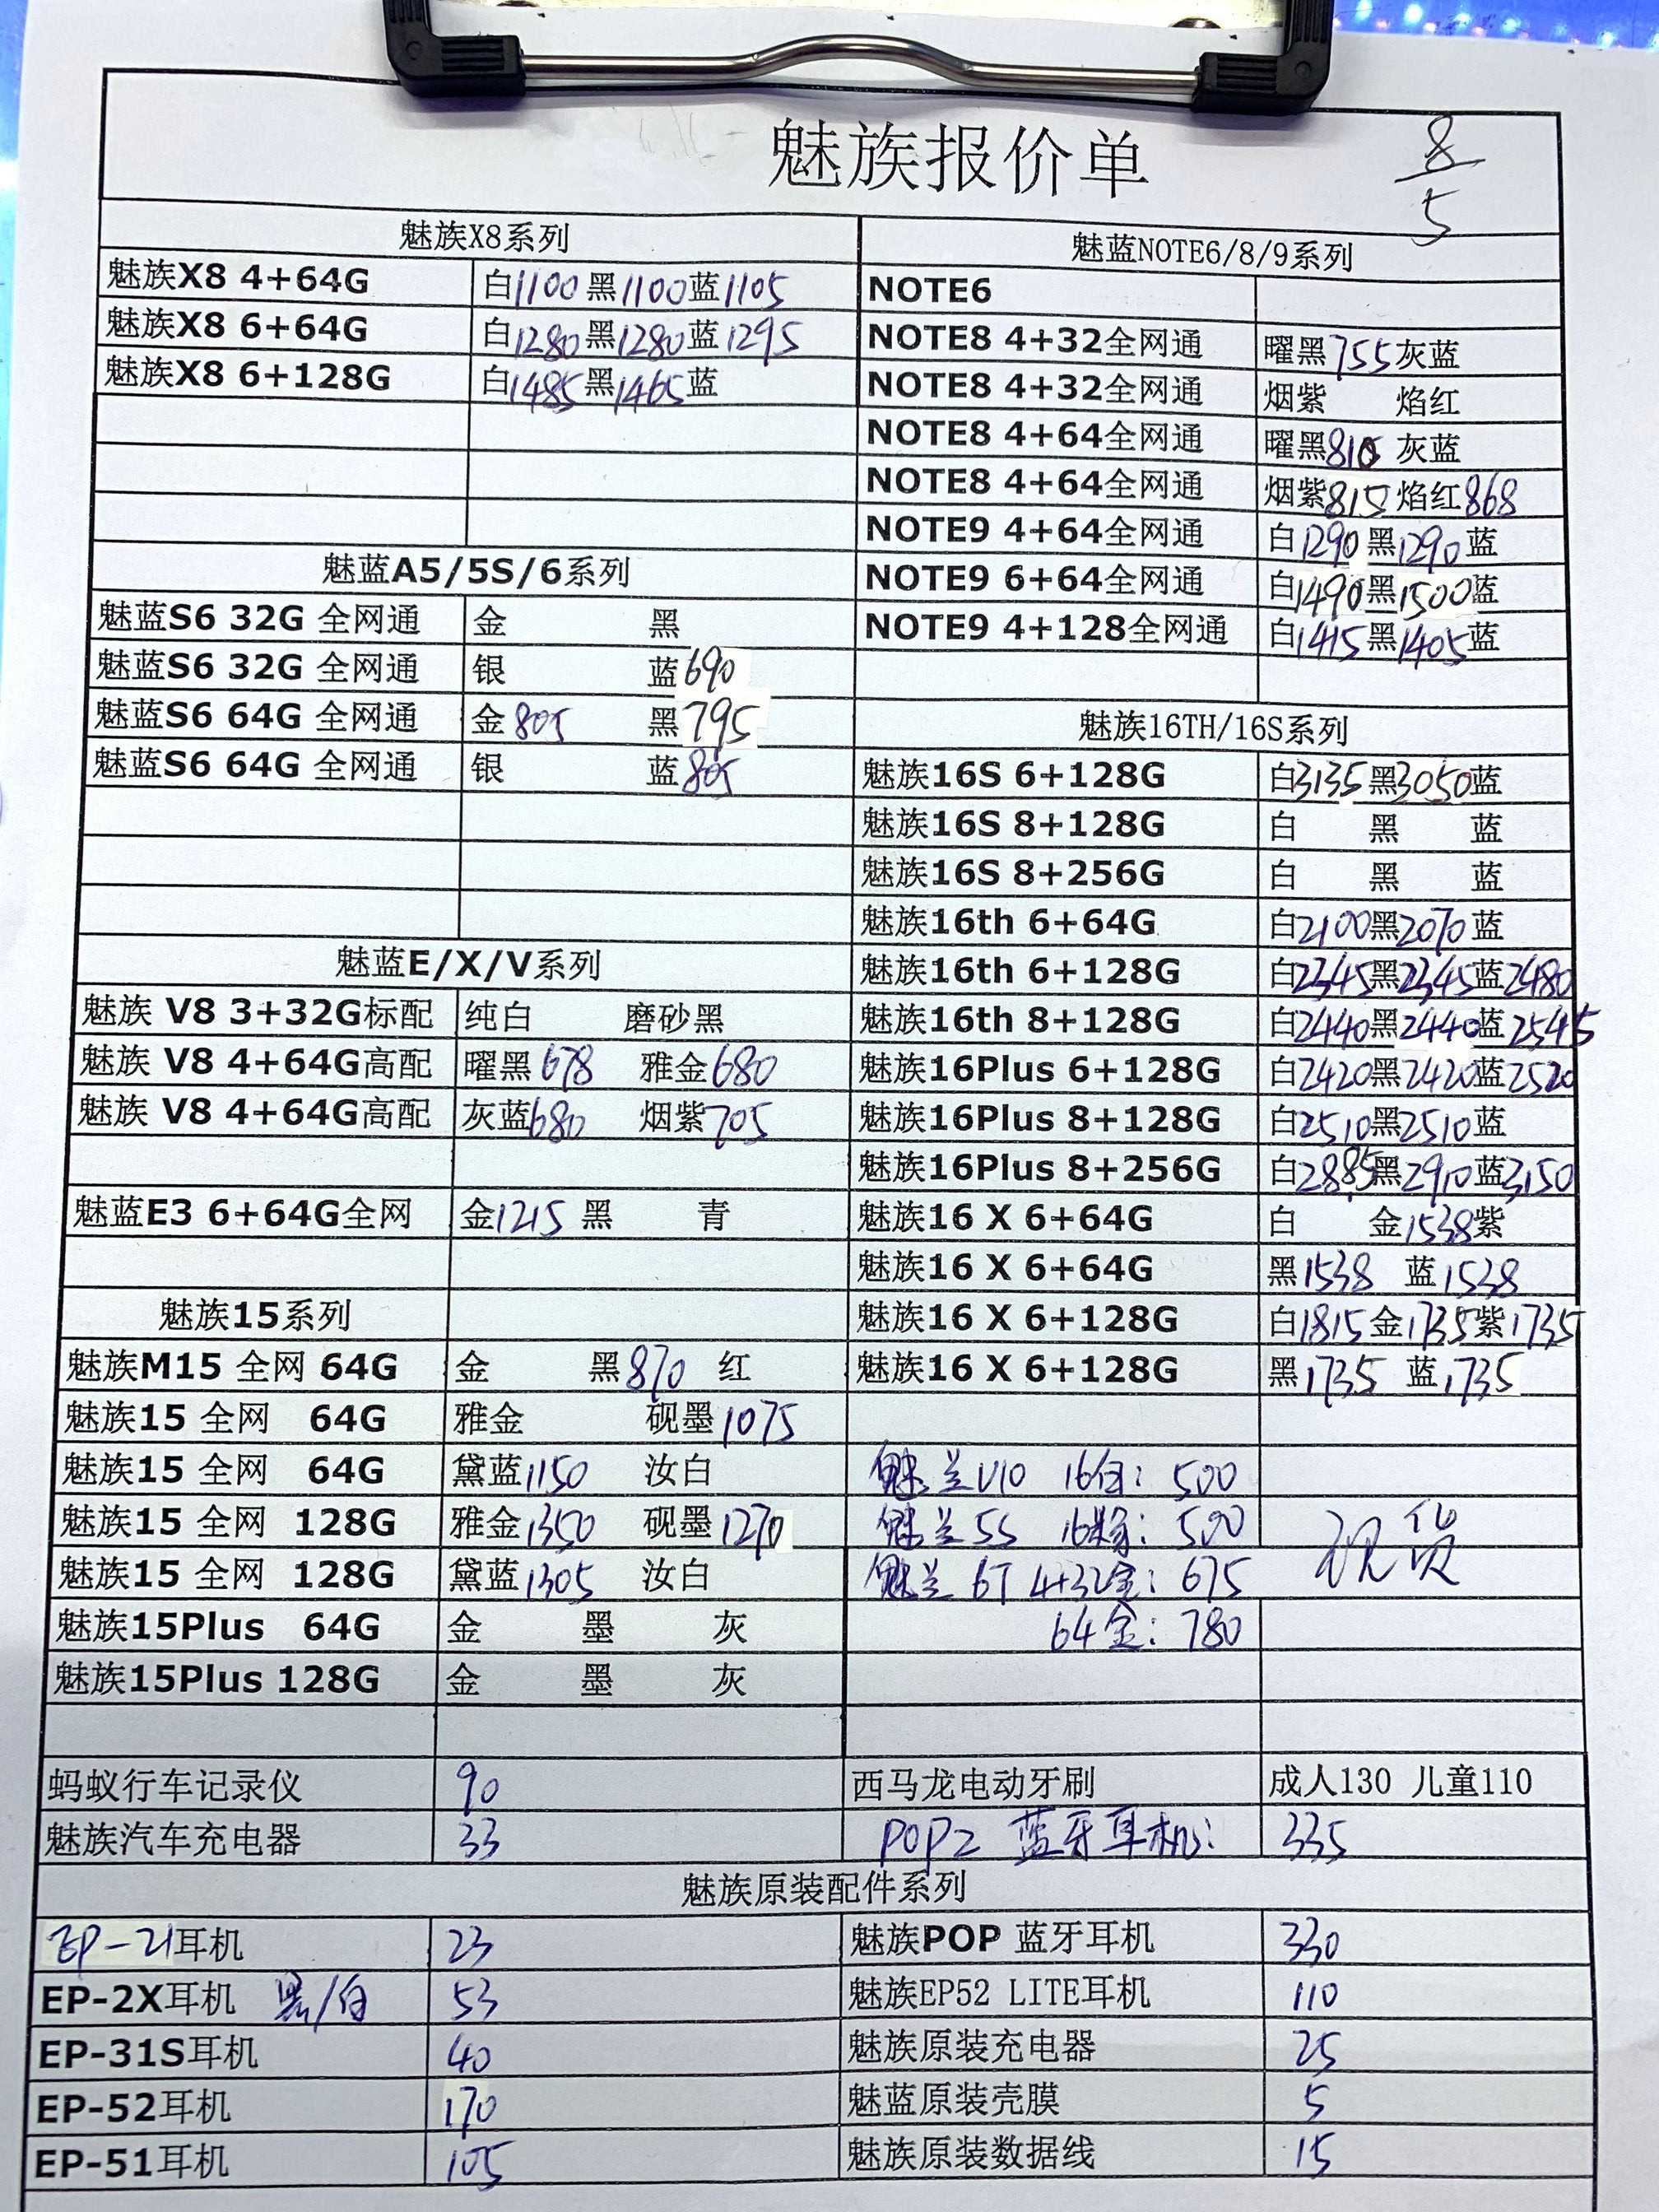 魅族报价单
8/5
魅族X8系列
魅族X8 4+64G 白1100黑1100蓝1105
魅族X8 6+64G 白1280黑1280蓝1295
魅族X8 6+128G 白1485黑1465蓝
魅蓝A5/5S/6系列
魅蓝S6 32G 全网通 金 黑
魅蓝S6 32G 全网通 银 蓝690
魅蓝S6 64G 全网通 金805 黑795
魅蓝S6 64G 全网通 银 蓝805
魅蓝E/X/V系列
魅族 V8 3+32G标配 纯白 磨砂黑
魅族 V8 4+64G高配 曜黑678 雅金680
魅族 V8 4+64G高配 灰蓝680 烟紫705
魅蓝E3 6+64G全网 金1215 黑 青
魅族15系列
魅族M15 全网 64G 金 黑870 红
魅族15 全网 64G 雅金 砚墨1075
魅族15 全网 64G 黛蓝1150 汝白
魅族15 全网 128G 雅金1350 砚墨1270
魅族15 全网 128G 黛蓝1305 汝白
魅族15Plus 64G 金 墨 灰
魅族15Plus 128G 金 墨 灰
魅蓝NOTE6/8/9系列
NOTE6
NOTE8 4+32全网通 曜黑755灰蓝
NOTE8 4+32全网通 烟紫 焰红
NOTE8 4+64全网通 曜黑810 灰蓝
NOTE8 4+64全网通 烟紫815 焰红868
NOTE9 4+64全网通 白1290黑1290蓝
NOTE9 6+64全网通 白1490黑1500蓝
NOTE9 4+128全网通 白1415黑1405蓝
魅族16TH/16S系列
魅族16S 6+128G 白3135黑3050蓝
魅族16S 8+128G 白 黑 蓝
魅族16S 8+256G 白 黑 蓝
魅族16th 6+64G 白2100黑2070蓝
魅族16th 6+128G 白2345黑2345蓝2480
魅族16th 8+128G 白2440黑2440蓝2545
魅族16Plus 6+128G 白2420黑2420蓝2520
魅族16Plus 8+128G 白2510黑2510蓝
魅族16Plus 8+256G 白2885黑2910蓝3150
魅族16 X 6+64G 白 金1538紫
魅族16 X 6+64G 黑1538 蓝1538
魅族16 X 6+128G 白1815金1735紫1735
魅族16 X 6+128G 黑1735 蓝1735
魅兰U10 16白: 500
魅兰5S 16: 500
现货
魅兰6T 4+32金: 675
64金: 780
蚂蚁行车记录仪 90 西马龙电动牙刷 成人130 儿童110
魅族汽车充电器 33 POP2 蓝牙耳机: 335
魅族原装配件系列
EP-21耳机 23 魅族POP 蓝牙耳机 330
EP-2X耳机 黑/白 53 魅族EP52 LITE耳机 110
EP-31S耳机 40 魅族原装充电器 25
EP-52耳机 170 魅蓝原装壳膜 5
EP-51耳机 105 魅族原装数据线 15